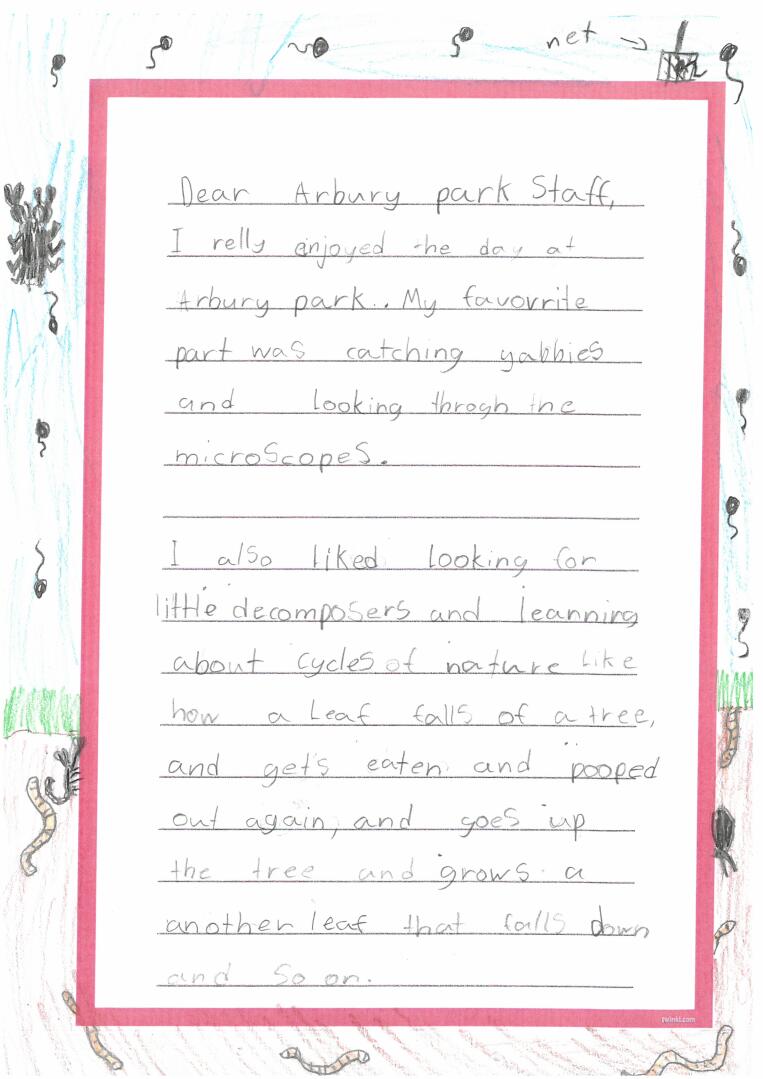 net
Dear Arbury park Staff,
I relly enjoyed the day at
Arbury park.. My favovrite
part was catching yabbies
and looking throgh the
microscopes.
I also liked looking for
little decomposers and leanning
about cycles of nature like
how a leaf falls of a tree,
and gets eaten and pooped
out again, and goes up
the tree and grows a
another leaf that falls down
and so on.
twinkl.com